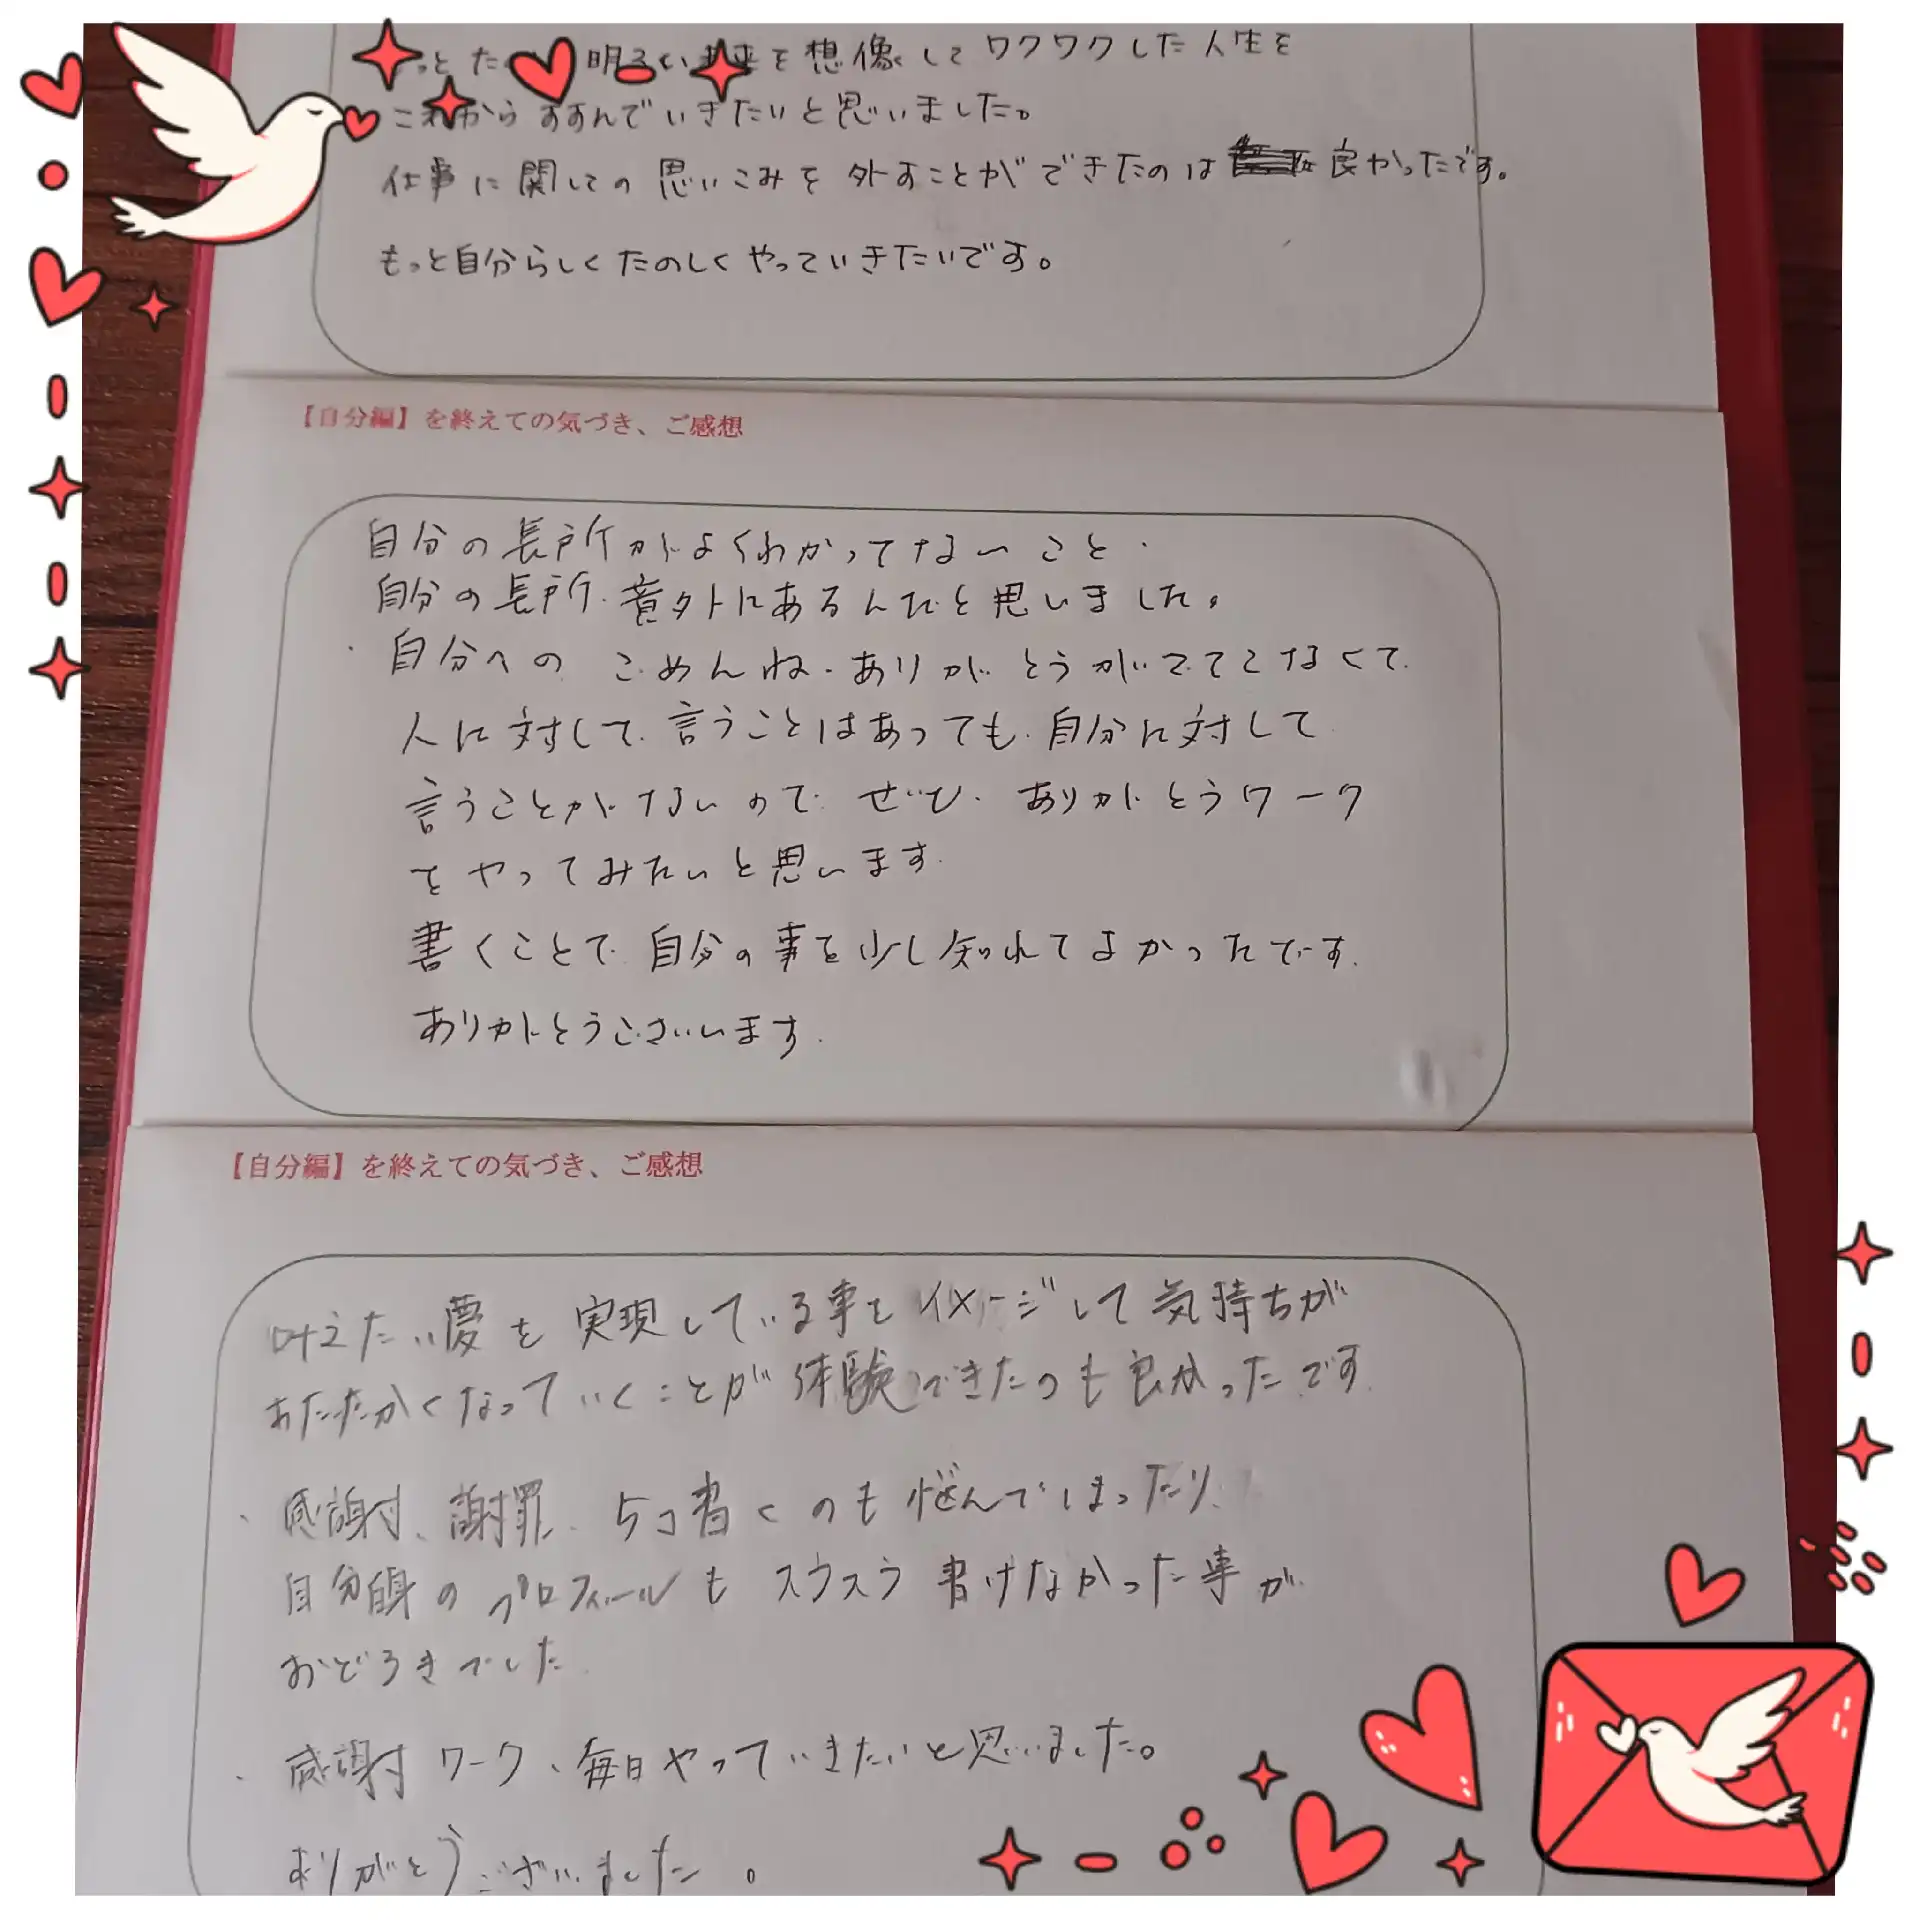 もっと た 明るい未来を想像してワクワクした人生を
これからすすんでいきたいと思いました。
仕事に関しての思いこみを外すことができたのは 良かったです。
もっと自分らしくたのしくやっていきたいです。
【自分編】を終えての気づき、ご感想
自分の長所がよくわかってないこと・
自分の長所.意外にあるんだと思いました。
・自分への ごめんね・ありがとうがでてこなくて.
人に対して.言うことはあっても.自分に対して
言うことがないので ぜひ.ありがとうワーク
をやってみたいと思います.
書くことで.自分の事を少し知れてよかったです.
ありがとうございます.
【自分編】を終えての気づき、ご感想
叶えたい夢を実現している事をイメージして気持ちが
あたたかくなっていくことが体験できたのも良かったです.
・感謝、謝罪、5コ書くのも悩んでしまったり、
自分自身のプロフィールもスラスラ書けなかった事が
おどろきでした.
・感謝ワーク、毎日やっていきたいと思いました。
ありがとうございました。